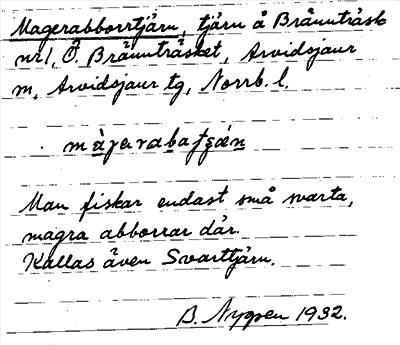 Magerabborrtjärn, tjärn å Brännträsk
nr1, Ö. Brännträsket, Arvidsjaur
sn, Arvidsjaur tg, Norrb. l.
Man fiskar endast små svarta,
magra abborrar där.
Kallas även Svarttjärn.
B. Nygren 1932.